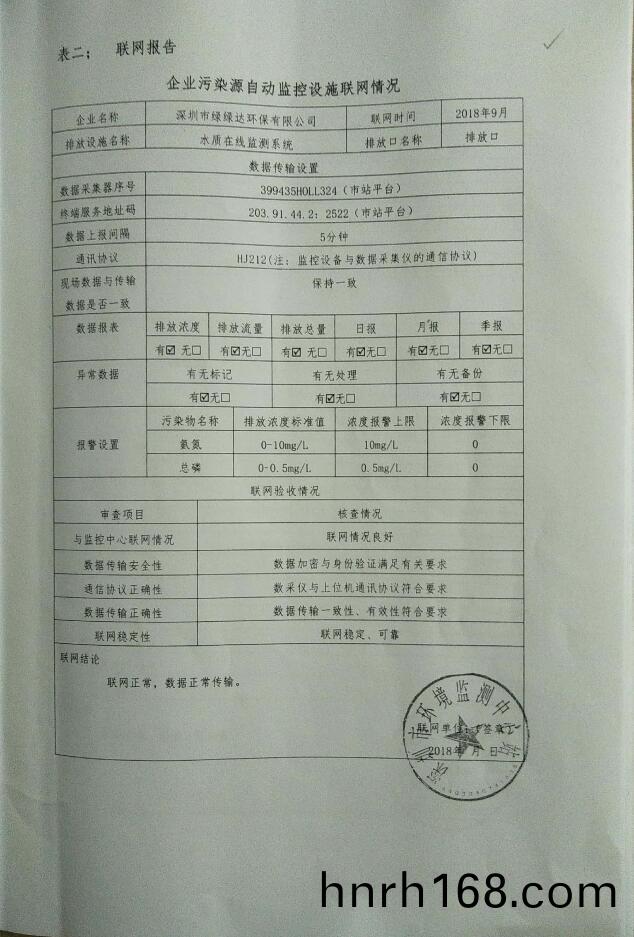 表二； 联网报告
企业污染源自动监控设施联网情况
企业名称 深圳市绿绿达环保有限公司 联网时间 2018年9月
排放设施名称 水质在线监测系统 排放口名称 排放口
数据传输设置
数据采集器序号 399435HOLL324（市站平台）
终端服务地址码 203.91.44.2：2522（市站平台）
数据上报间隔 5分钟
通讯协议 HJ212(注：监控设备与数据采集仪的通信协议)
现场数据与传输 保持一致
数据是否一致
数据报表 排放浓度 排放流量 排放总量 日报 月报 季报
有☑ 无□ 有☑无□ 有☑ 无□ 有☑无□ 有☑无□ 有☑无□
异常数据 有无标记 有无处理 有无备份
有☑无□ 有☑无□ 有☑无□
污染物名称 排放浓度标准值 浓度报警上限 浓度报警下限
报警设置 氨氮 0-10mg/L 10mg/L 0
总磷 0-0.5mg/L 0.5mg/L 0
联网验收情况
审查项目 核查情况
与监控中心联网情况 联网情况良好
数据传输安全性 数据加密与身份验证满足有关要求
通信协议正确性 数采仪与上位机通讯协议符合要求
数据传输正确性 数据传输一致性、有效性符合要求
联网稳定性 联网稳定、可靠
联网结论
联网正常，数据正常传输。
深圳市环境监测中心站
联网单位：（签章）
2018年 月 日
hnrh168.com